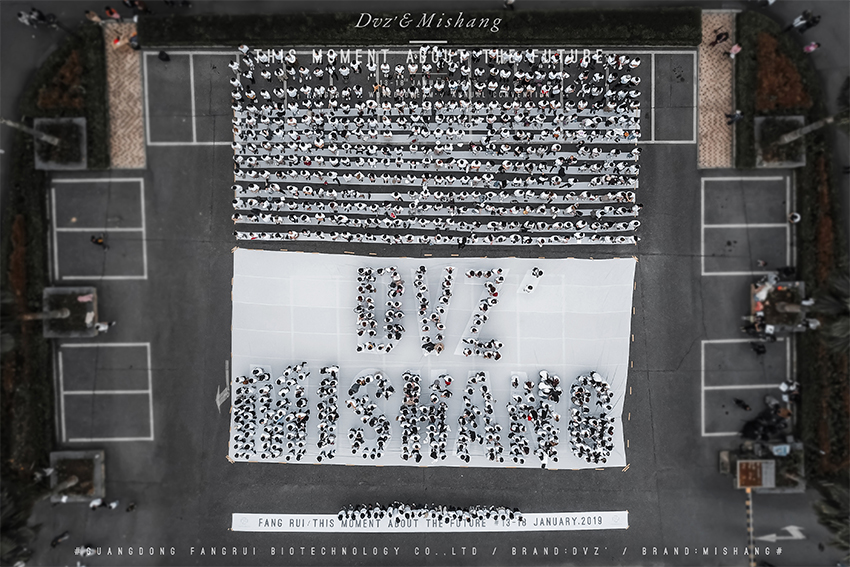 Dvz'&Mishang
THIS MOMENT ABOUT THE FUTURE
DVZ'
MISHANG
FANG RUI/THIS MOMENT ABOUT THE FUTURE 13-18 JANUARY.2019
#GUANGDONG FANGRUI BIOTECHNOLOGY CO.,LTD / BRAND:DVZ' / BRAND:MISHANG#